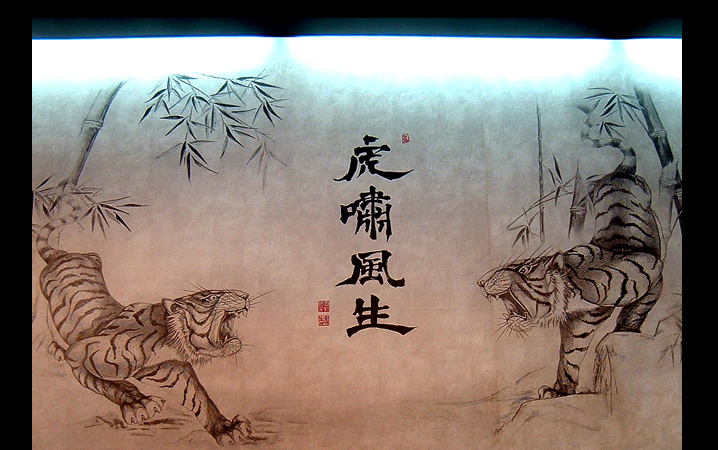 虎嘯風生